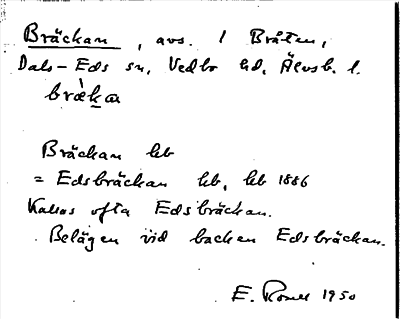 Bräckan, avs. 1 Bråten,
Dals-Eds sn, Vedbo hd, Älvsb. l.
bræ̀ka
Bräckan hb
= Edsbräckan hb, hb 1886
Kallas ofta Edsbräckan.
Belägen vid backen Edsbräckan.
E. 1950